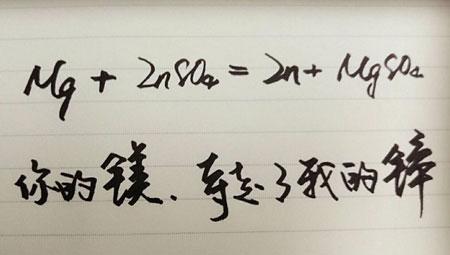 Mg + ZnSO₄ = Zn + MgSO₄
你的镁、牵起了我的锌